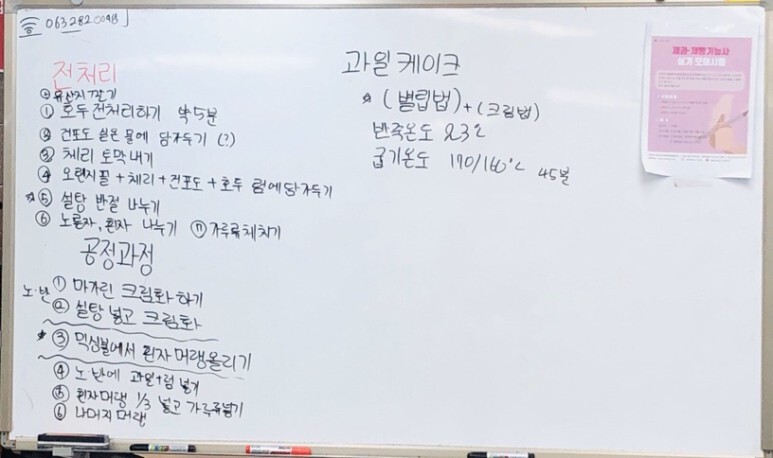 063282
전처리
유산지깔기
① 호두전처리하기 약 5분
② 건포도 싶은 물에 담가두기 (?)
③ 체리 토막내기
④ 오렌지필 + 체리 + 건포도 + 호두 럼에 담가두기
*⑤ 설탕 반절 나누기
⑥ 노른자, 흰자 나누기 ⑦ 가루류체치기
공정과정
노.반 ① 마가린 크림화 하기
② 설탕 넣고 크림화
* ③ 믹싱볼에서 흰자 머랭올리기
④ 노.반에 과일+럼 넣기
⑤ 흰자머랭 1/3 넣고 가루류넣기
⑥ 나머지 머랭
과일케이크
* (별립법) + (크림법)
반죽온도 23℃
굽기온도 190/160℃ 45분
제과·제빵기능사
실기 모의시험